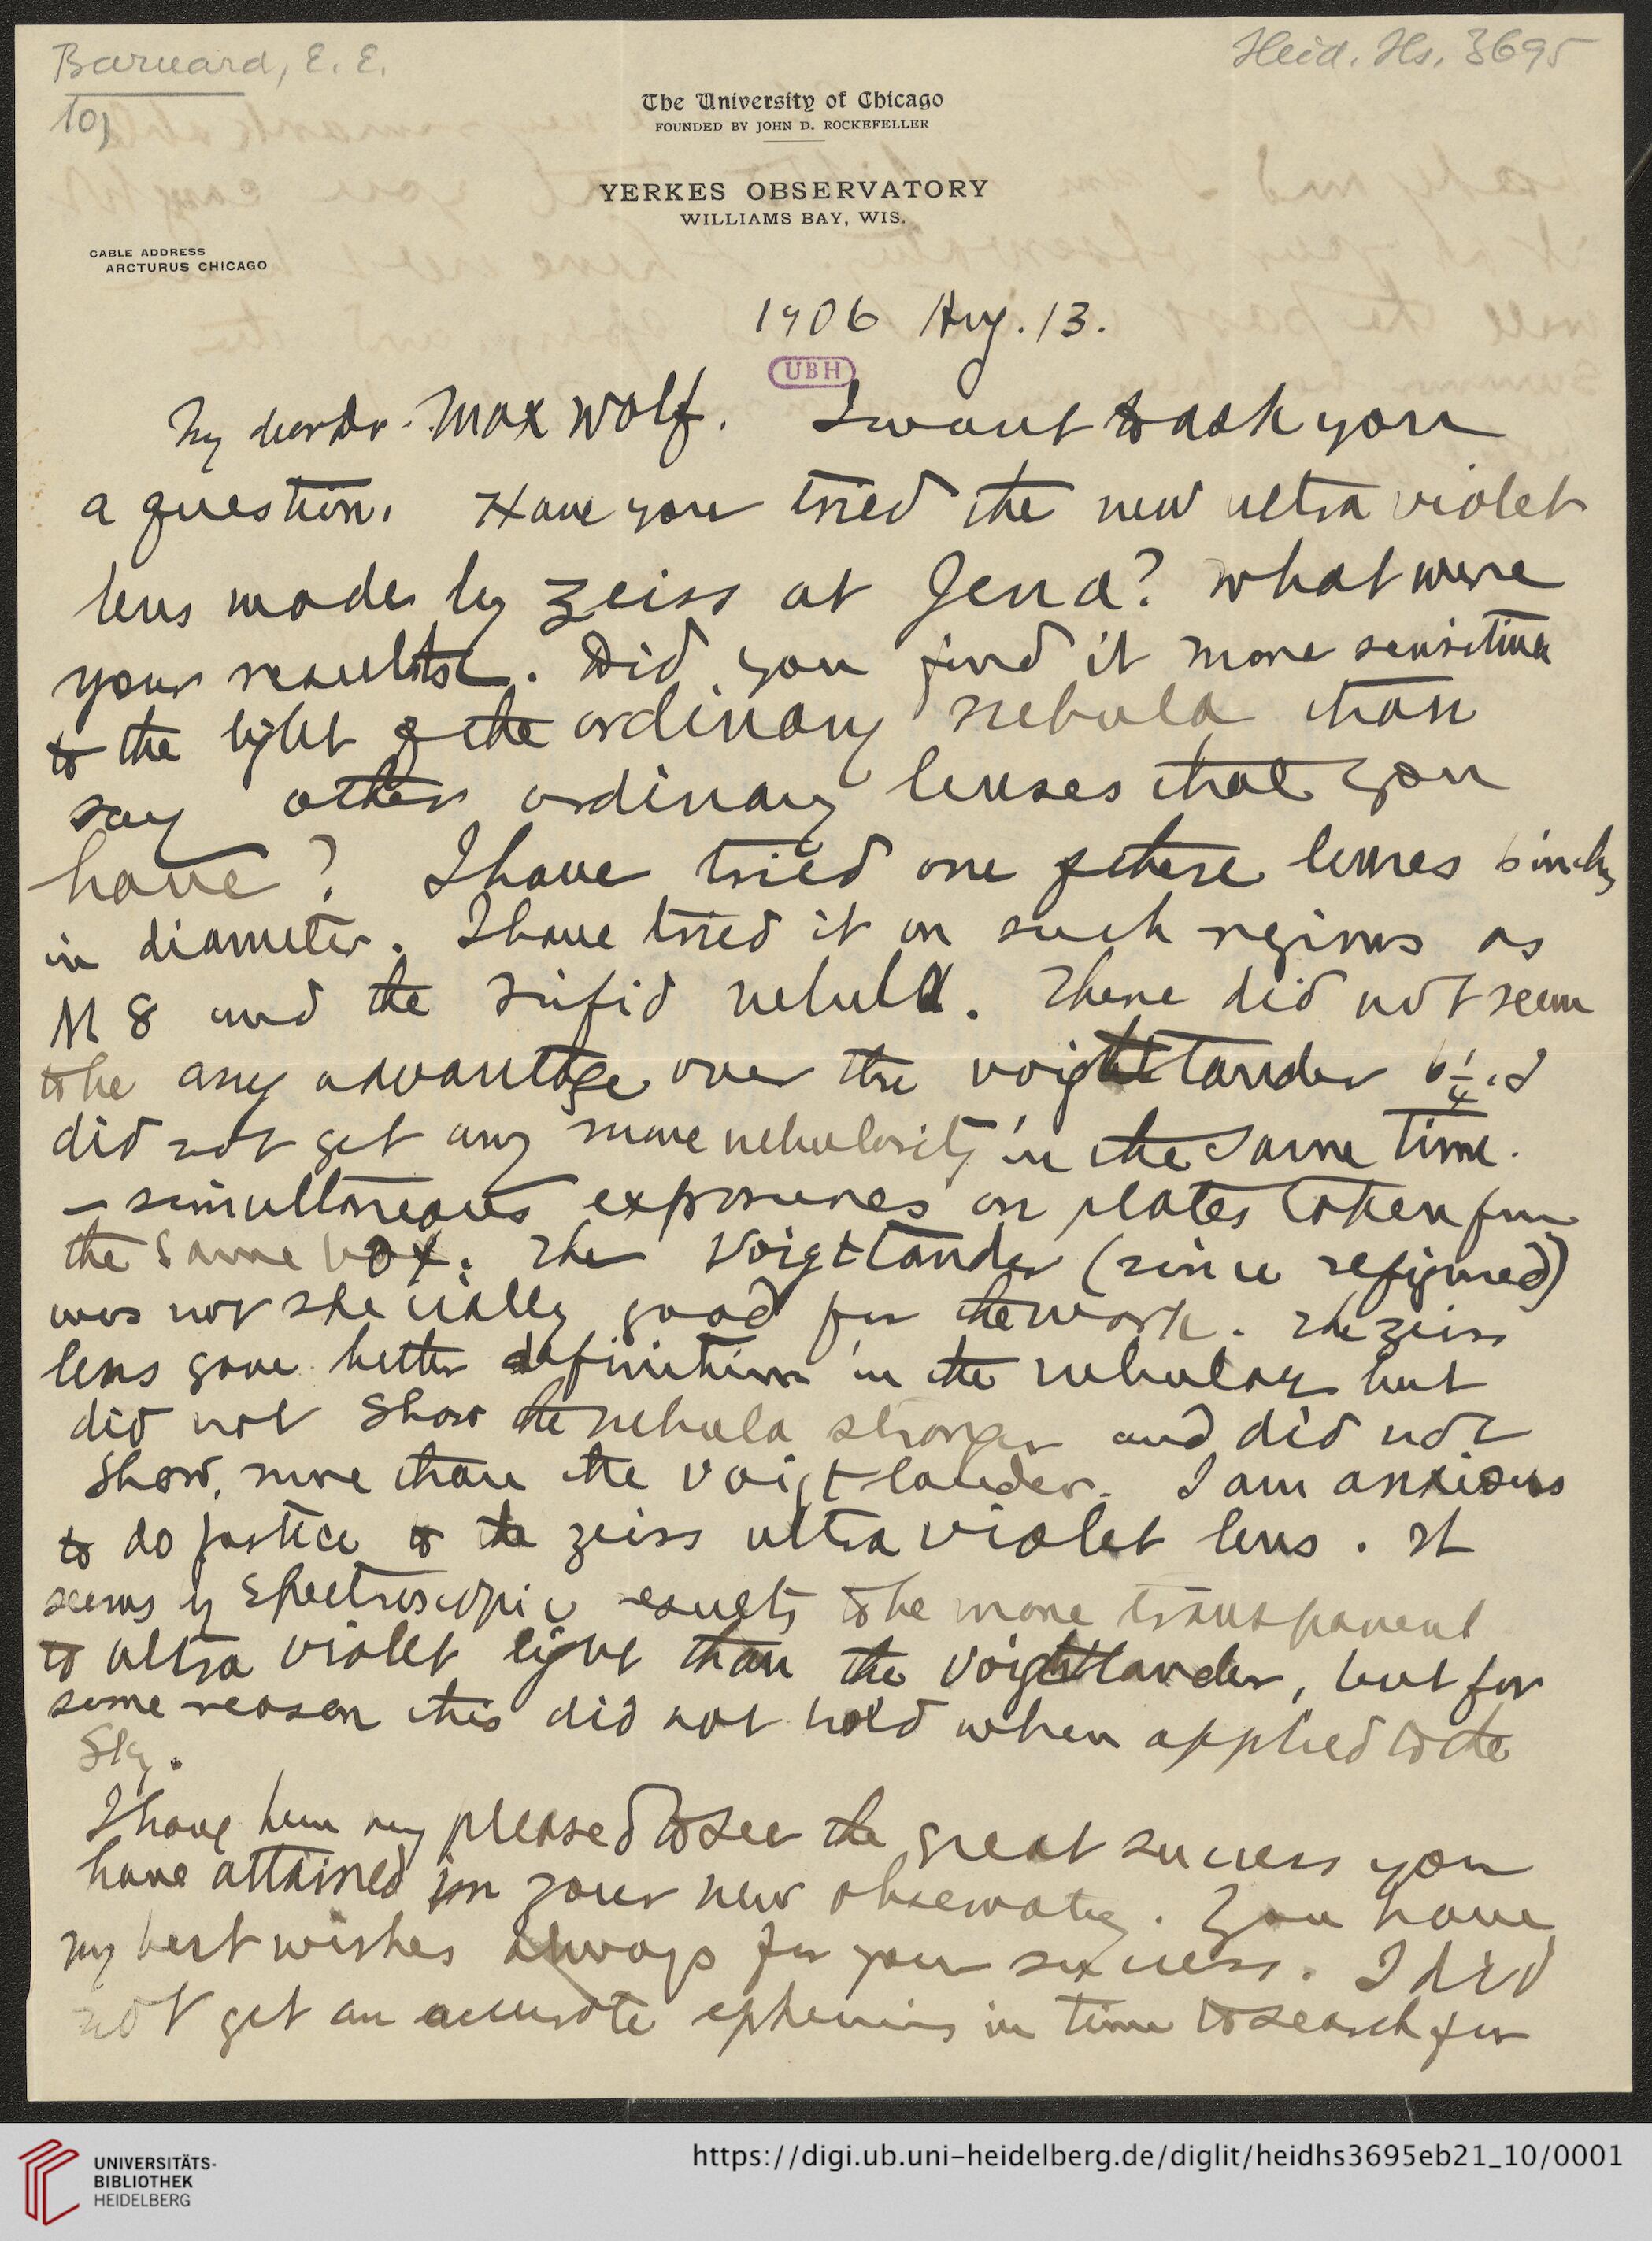 Barnard, E. E.
10)
Heid. Hs. 3695
The University of Chicago
FOUNDED BY JOHN D. ROCKEFELLER
YERKES OBSERVATORY
WILLIAMS BAY, WIS.
CABLE ADDRESS
ARCTURUS CHICAGO
1906 Aug. 13.
UBH
My dear Dr. Max Wolf. I want to ask you
a question. Have you tried the new ultra violet
lens made by Zeiss at Jena? What were
your results. Did you find it more sensitive
to the light of the ordinary nebula than
say other ordinary lenses that you
have? I have tried one of these lenses 6 inches
in diameter. I have tried it on such regions as
M 8 and the trifid nebula. There did not seem
to be any advantage over the voightlander 6 1/4. I
did not get any more nebulosity in the same time.
– simultaneous exposures on plates taken from
the same box. The Voigtlander (since refigured)
was not specially good for the work. The Zeiss
lens gave better definition in the nebulae but
did not show the nebula stronger and did not
show more than the Voigtlander. I am anxious
to do justice to the Zeiss ultra violet lens. It
seems by spectroscopic results to be more transparent
to ultra violet light than the Voightlander, but for
some reason this did not hold when applied to the
sky.
I have been very pleased to see the great success you
have attained in your new observatory. You have
my best wishes always for your success. I did
not get an accurate ephemeris in time to search for
UNIVERSITÄTS-
BIBLIOTHEK
HEIDELBERG
https://digi.ub.uni-heidelberg.de/diglit/heidhs3695eb21_10/0001